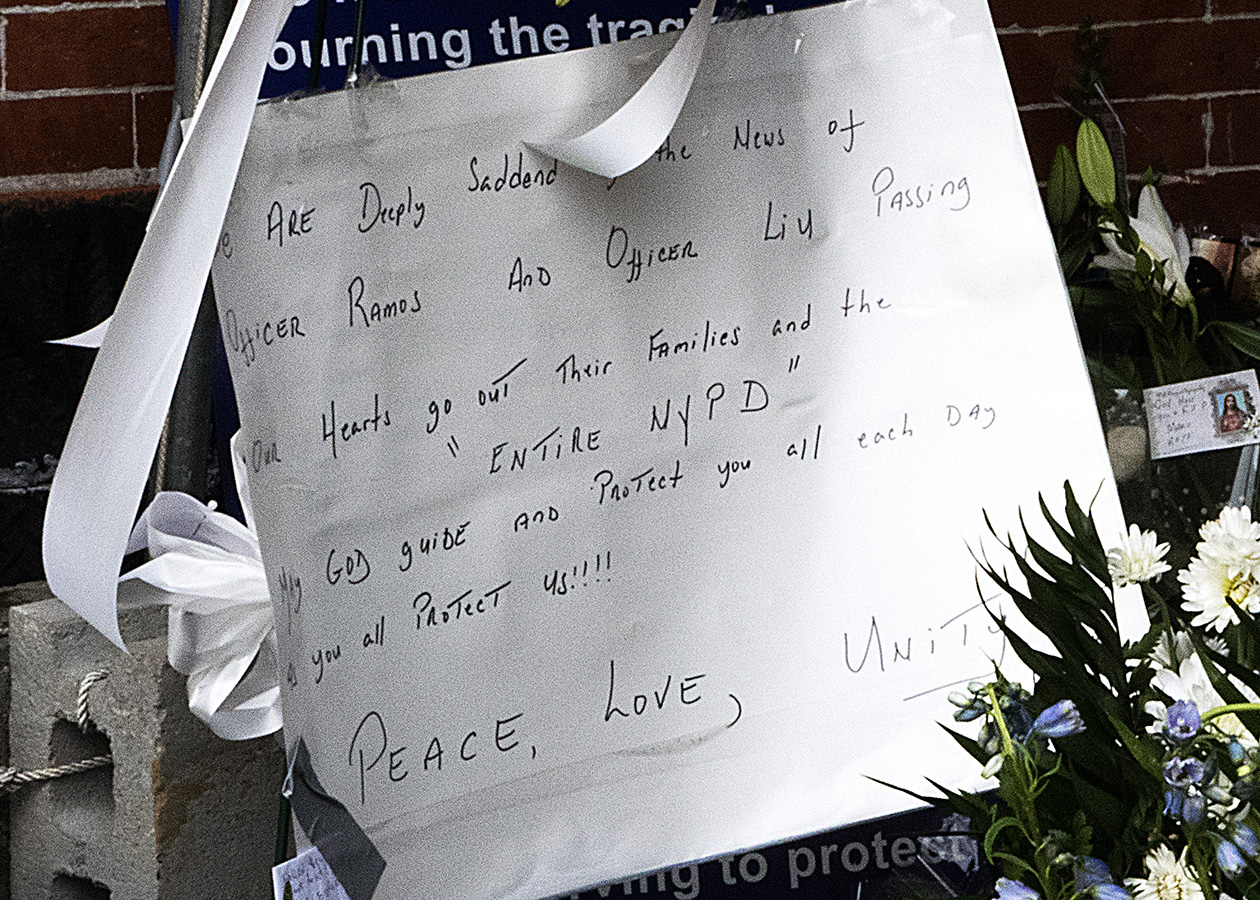 ourning the tragi
e ARE Deeply Saddend the News of
Officer Ramos And Officer Liu Passing
Our Hearts go out Their Families and the
" ENTiRE NYPD "
May GOD guiDE AnD Protect you all each DAy
As you all Protect us!!!!
PEACE, LOVE, UNiTy
ving to protect